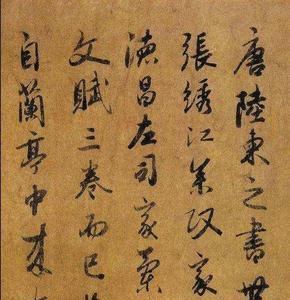 唐陸柬之書世
張綉江叅政家
昌左司家蘭
文賦三卷而已
自蘭亭中来